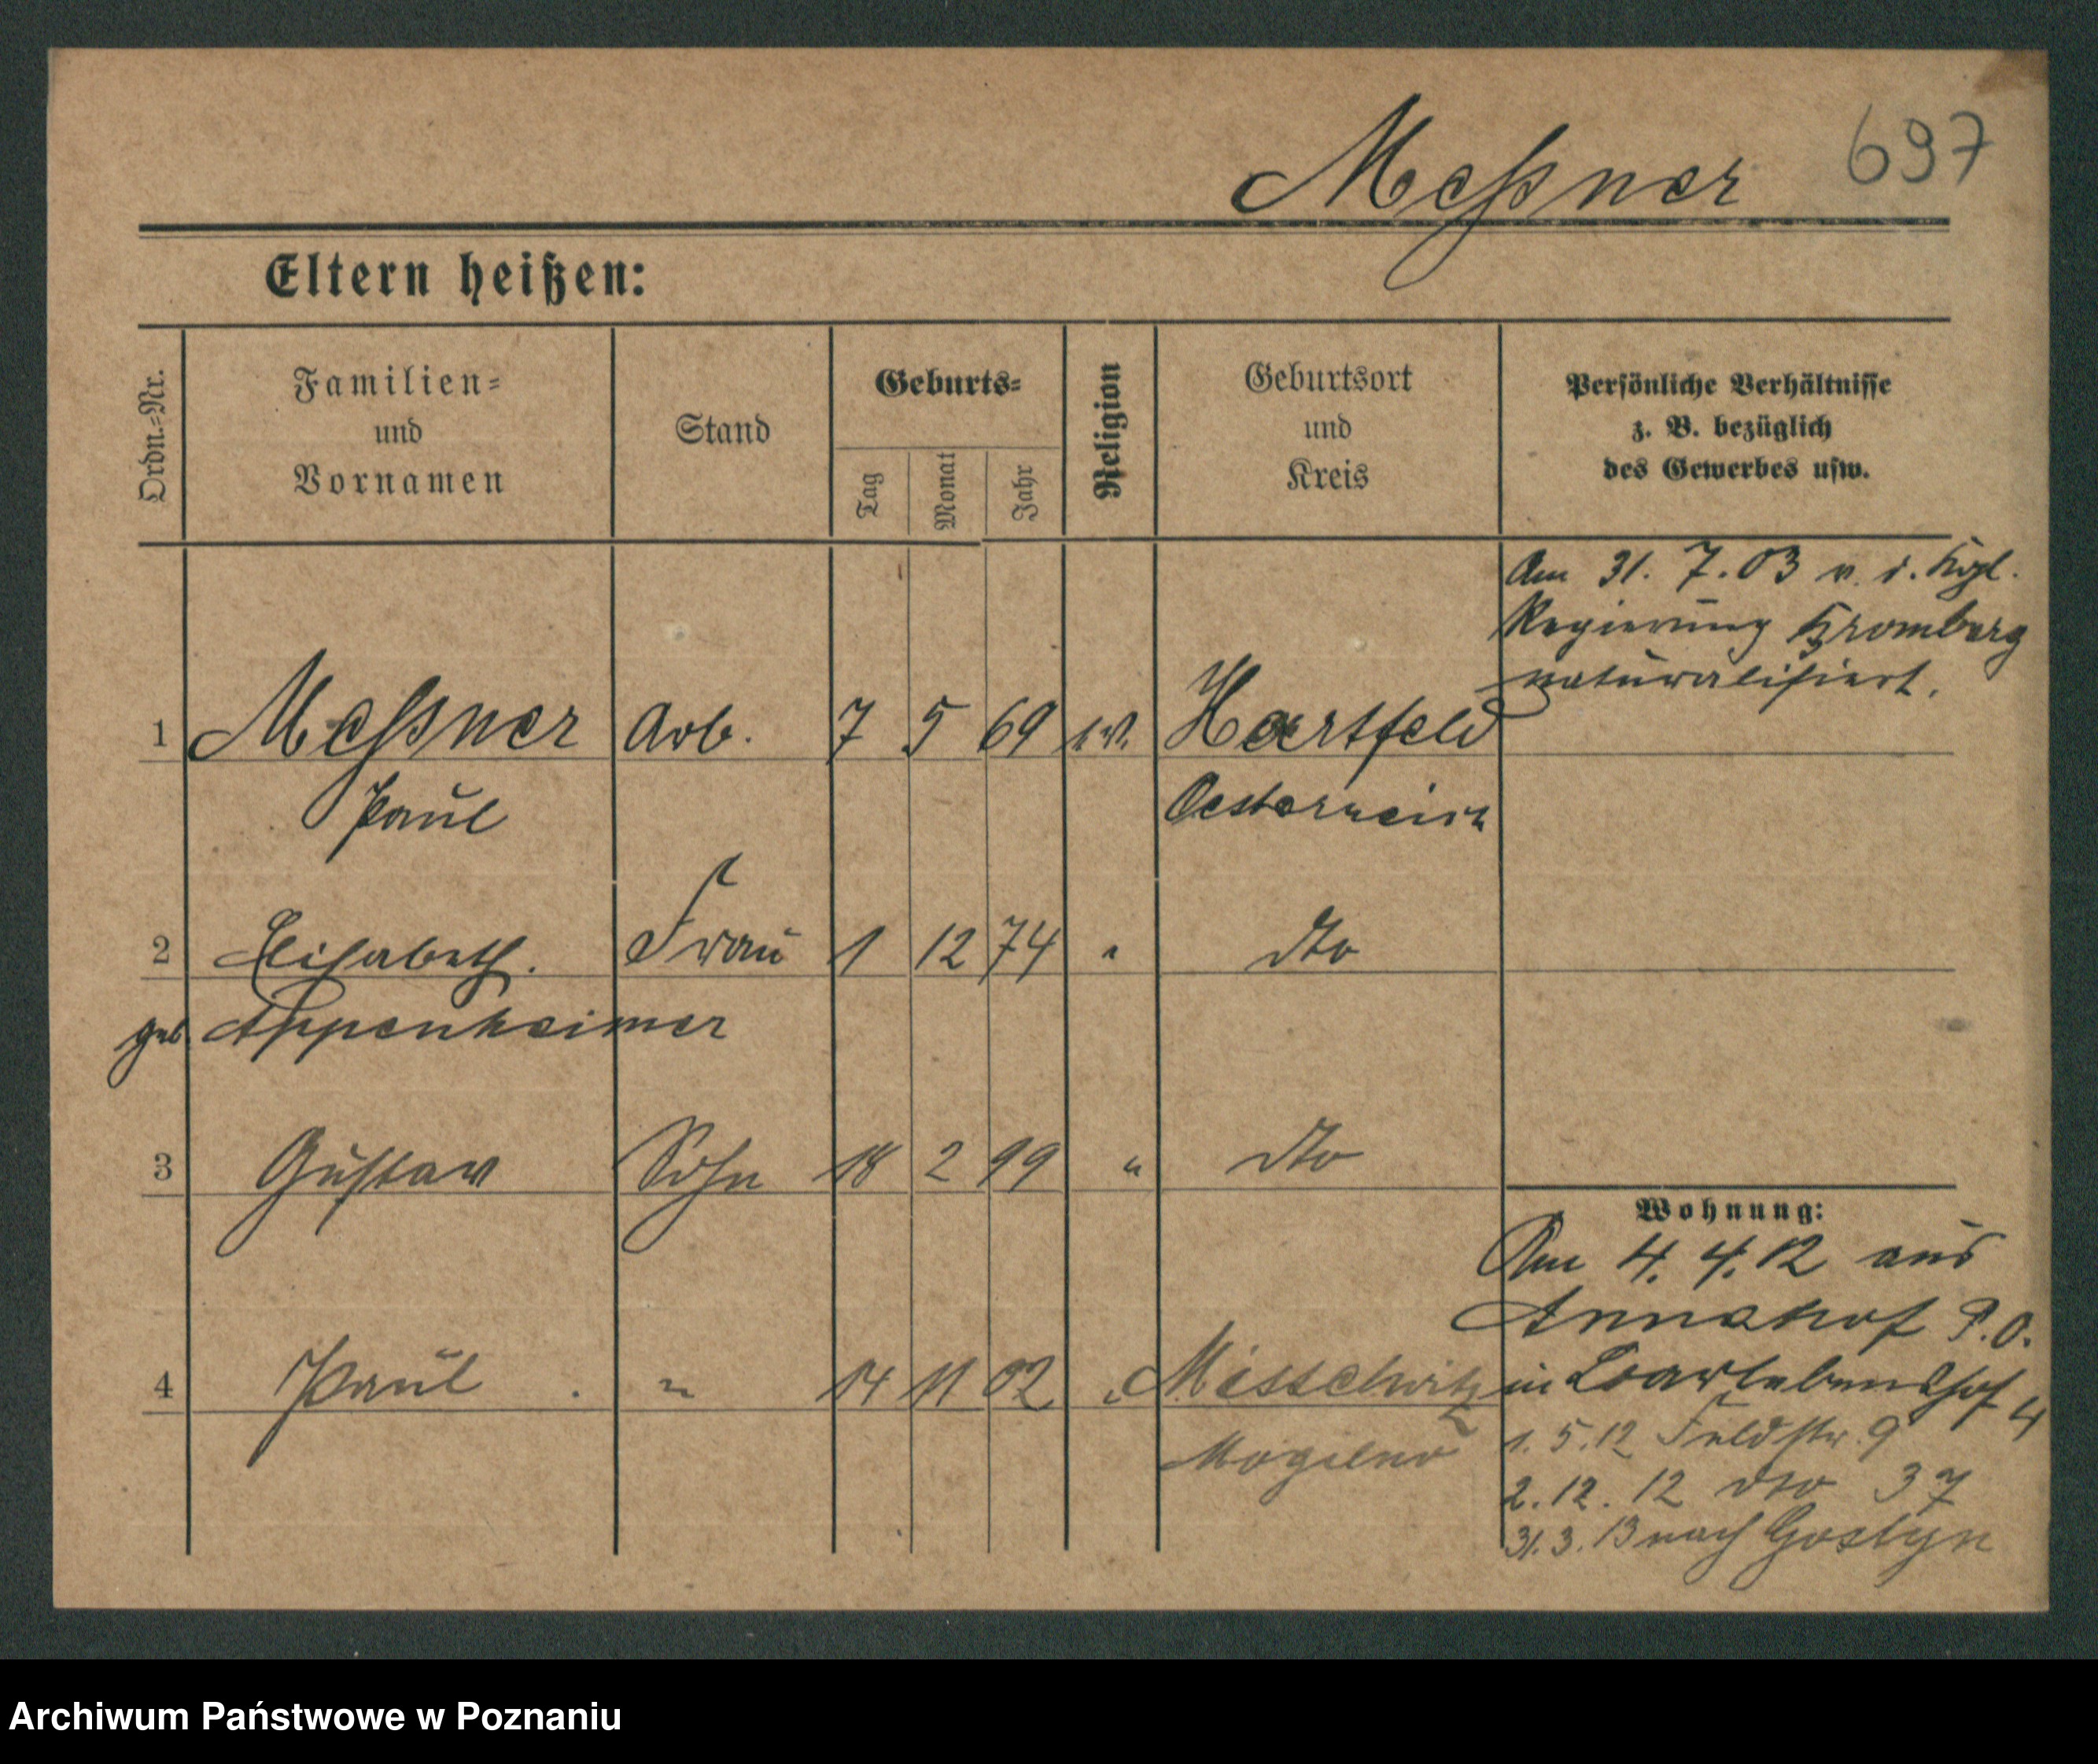 Meßner 697
Eltern heißen:
Ordn.=Nr.
Familien=
und
Vornamen
Stand
Geburts=
Tag
Monat
Jahr
Religion
Geburtsort
und
Kreis
Persönliche Verhältnisse
z. B. bezüglich
des Gewerbes usw.
Am 31. 7. 03 v. d. Kgl.
Regierung Bromberg
naturalisiert.
1 Meßner Arb. 7 5 69 ev. Hartfeld
Paul Oesterreich
2 Elisabeth. Frau 1 12 74 " dto
geb. Appenheimer
3 Gustav Sohn 18 2 99 " dto
Wohnung:
Am 4. 4. 12 aus
Annahof P.O.
4 Paul . " 14 11 02 " in
Mogilno 1. 5. 12 Feldstr. 9
2. 12. 12 dto 37
31. 3. 13 nach Gostyn
Archiwum Państwowe w Poznaniu